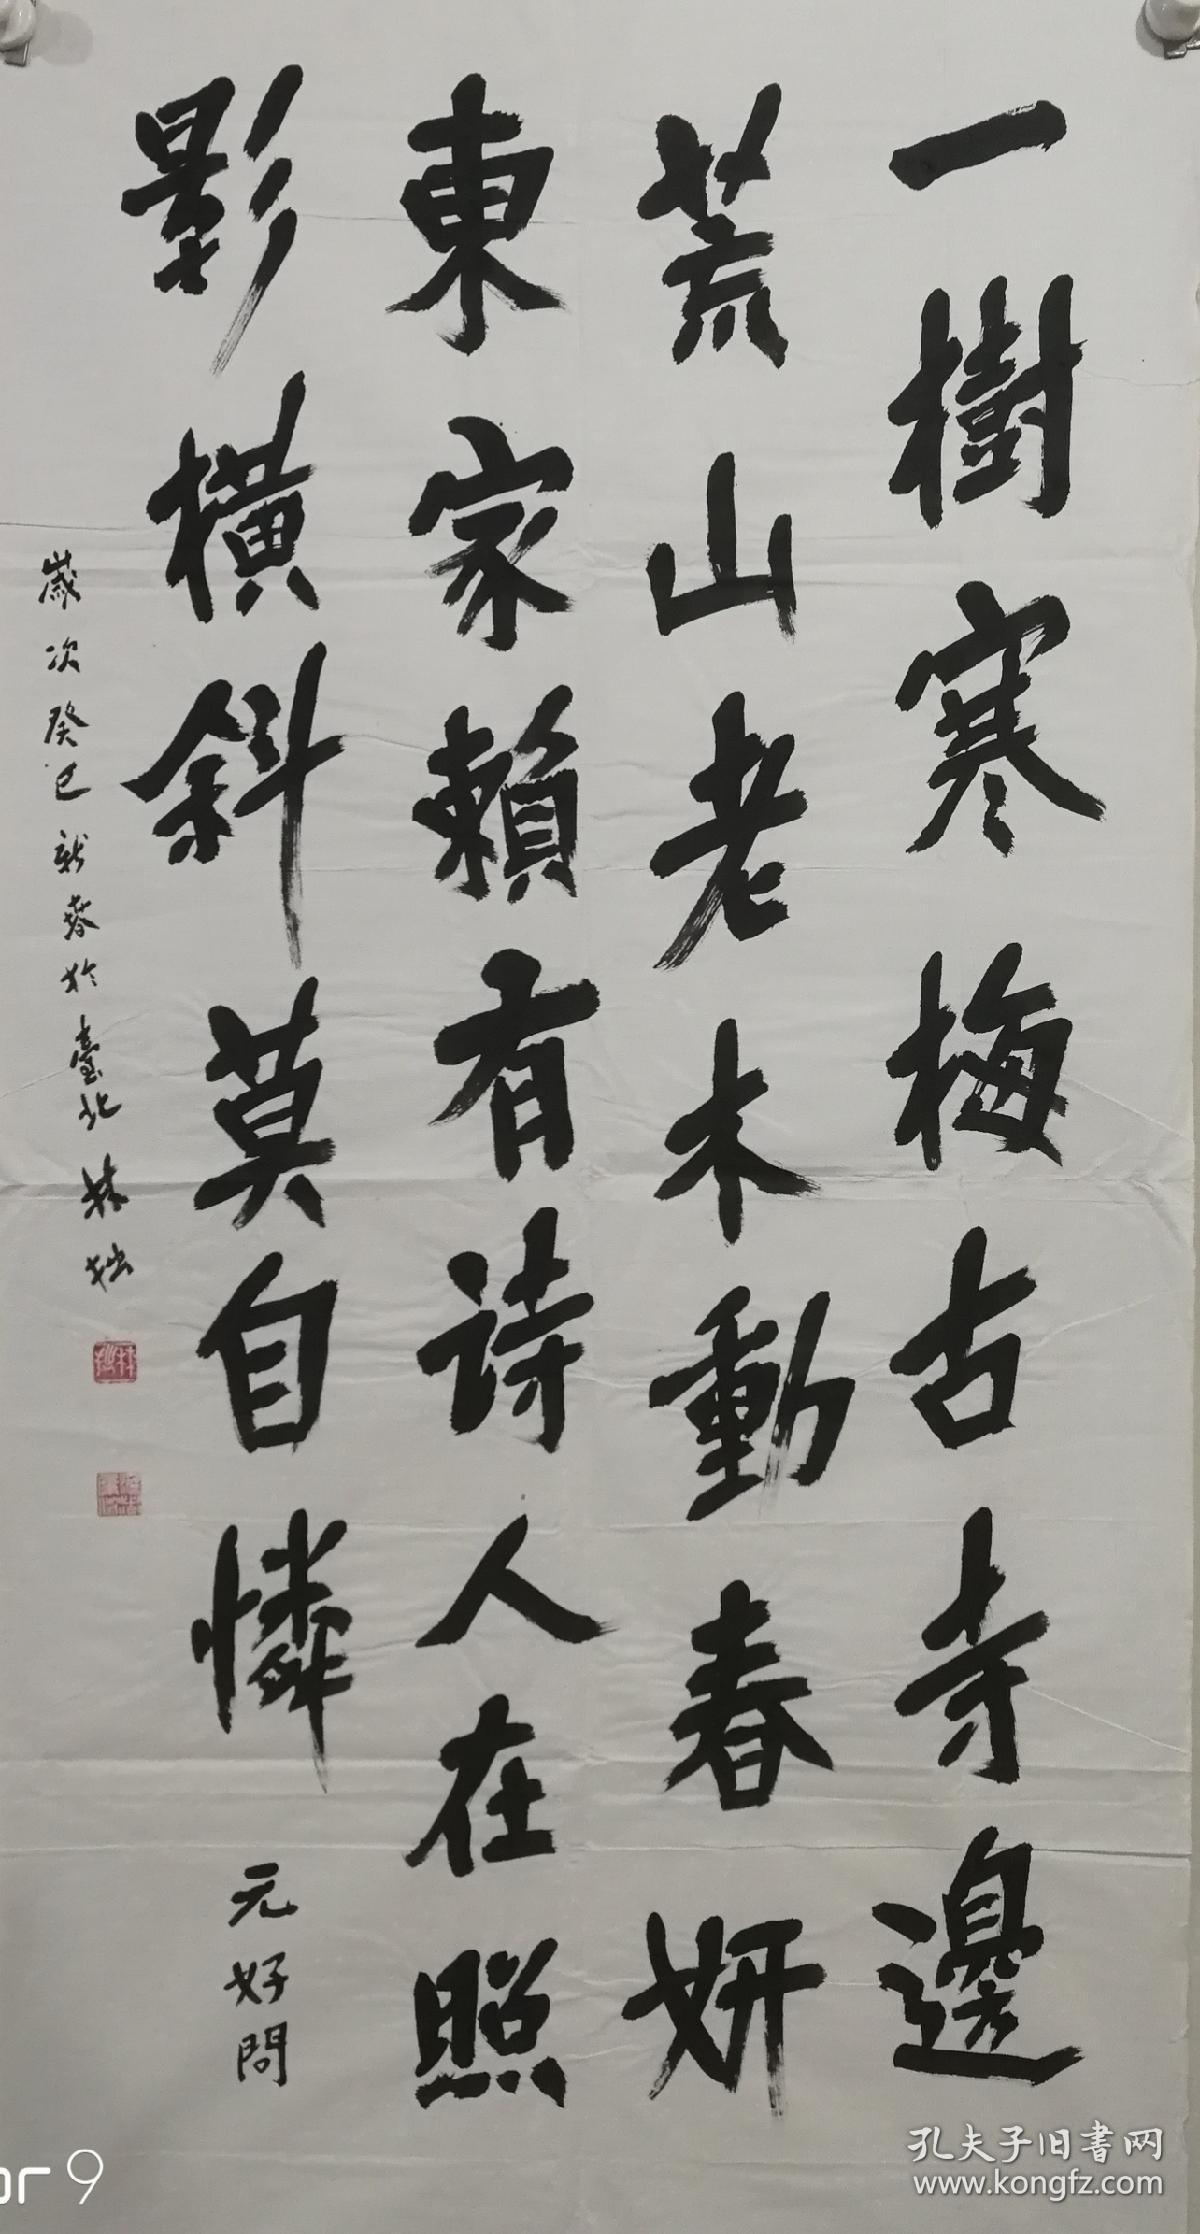 一樹寒梅古寺邊
荒山老木動春妍
東家賴有詩人在照
影橫斜莫自憐
元好問
歲次癸巳新春於臺北 林拙
孔夫子旧書网
www.kongfz.com
or 9